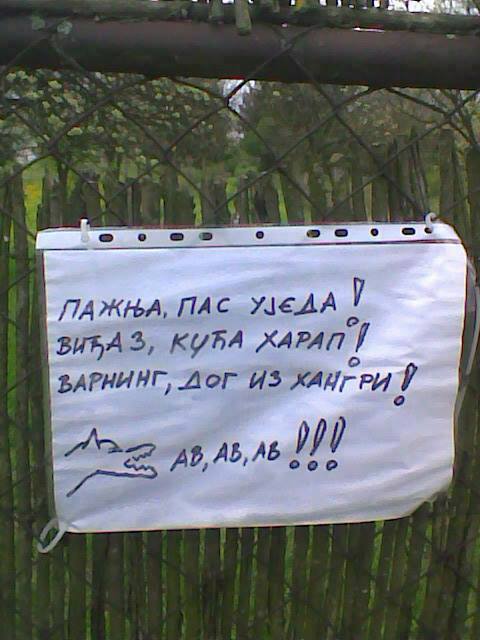 ПАЖЊА, ПАС УЈЕДА!
ВИЂАЗ, КУЋА ХАРАП!
ВАРНИНГ, ДОГ ИЗ ХАНГРИ!
АВ, АВ, АВ !!!